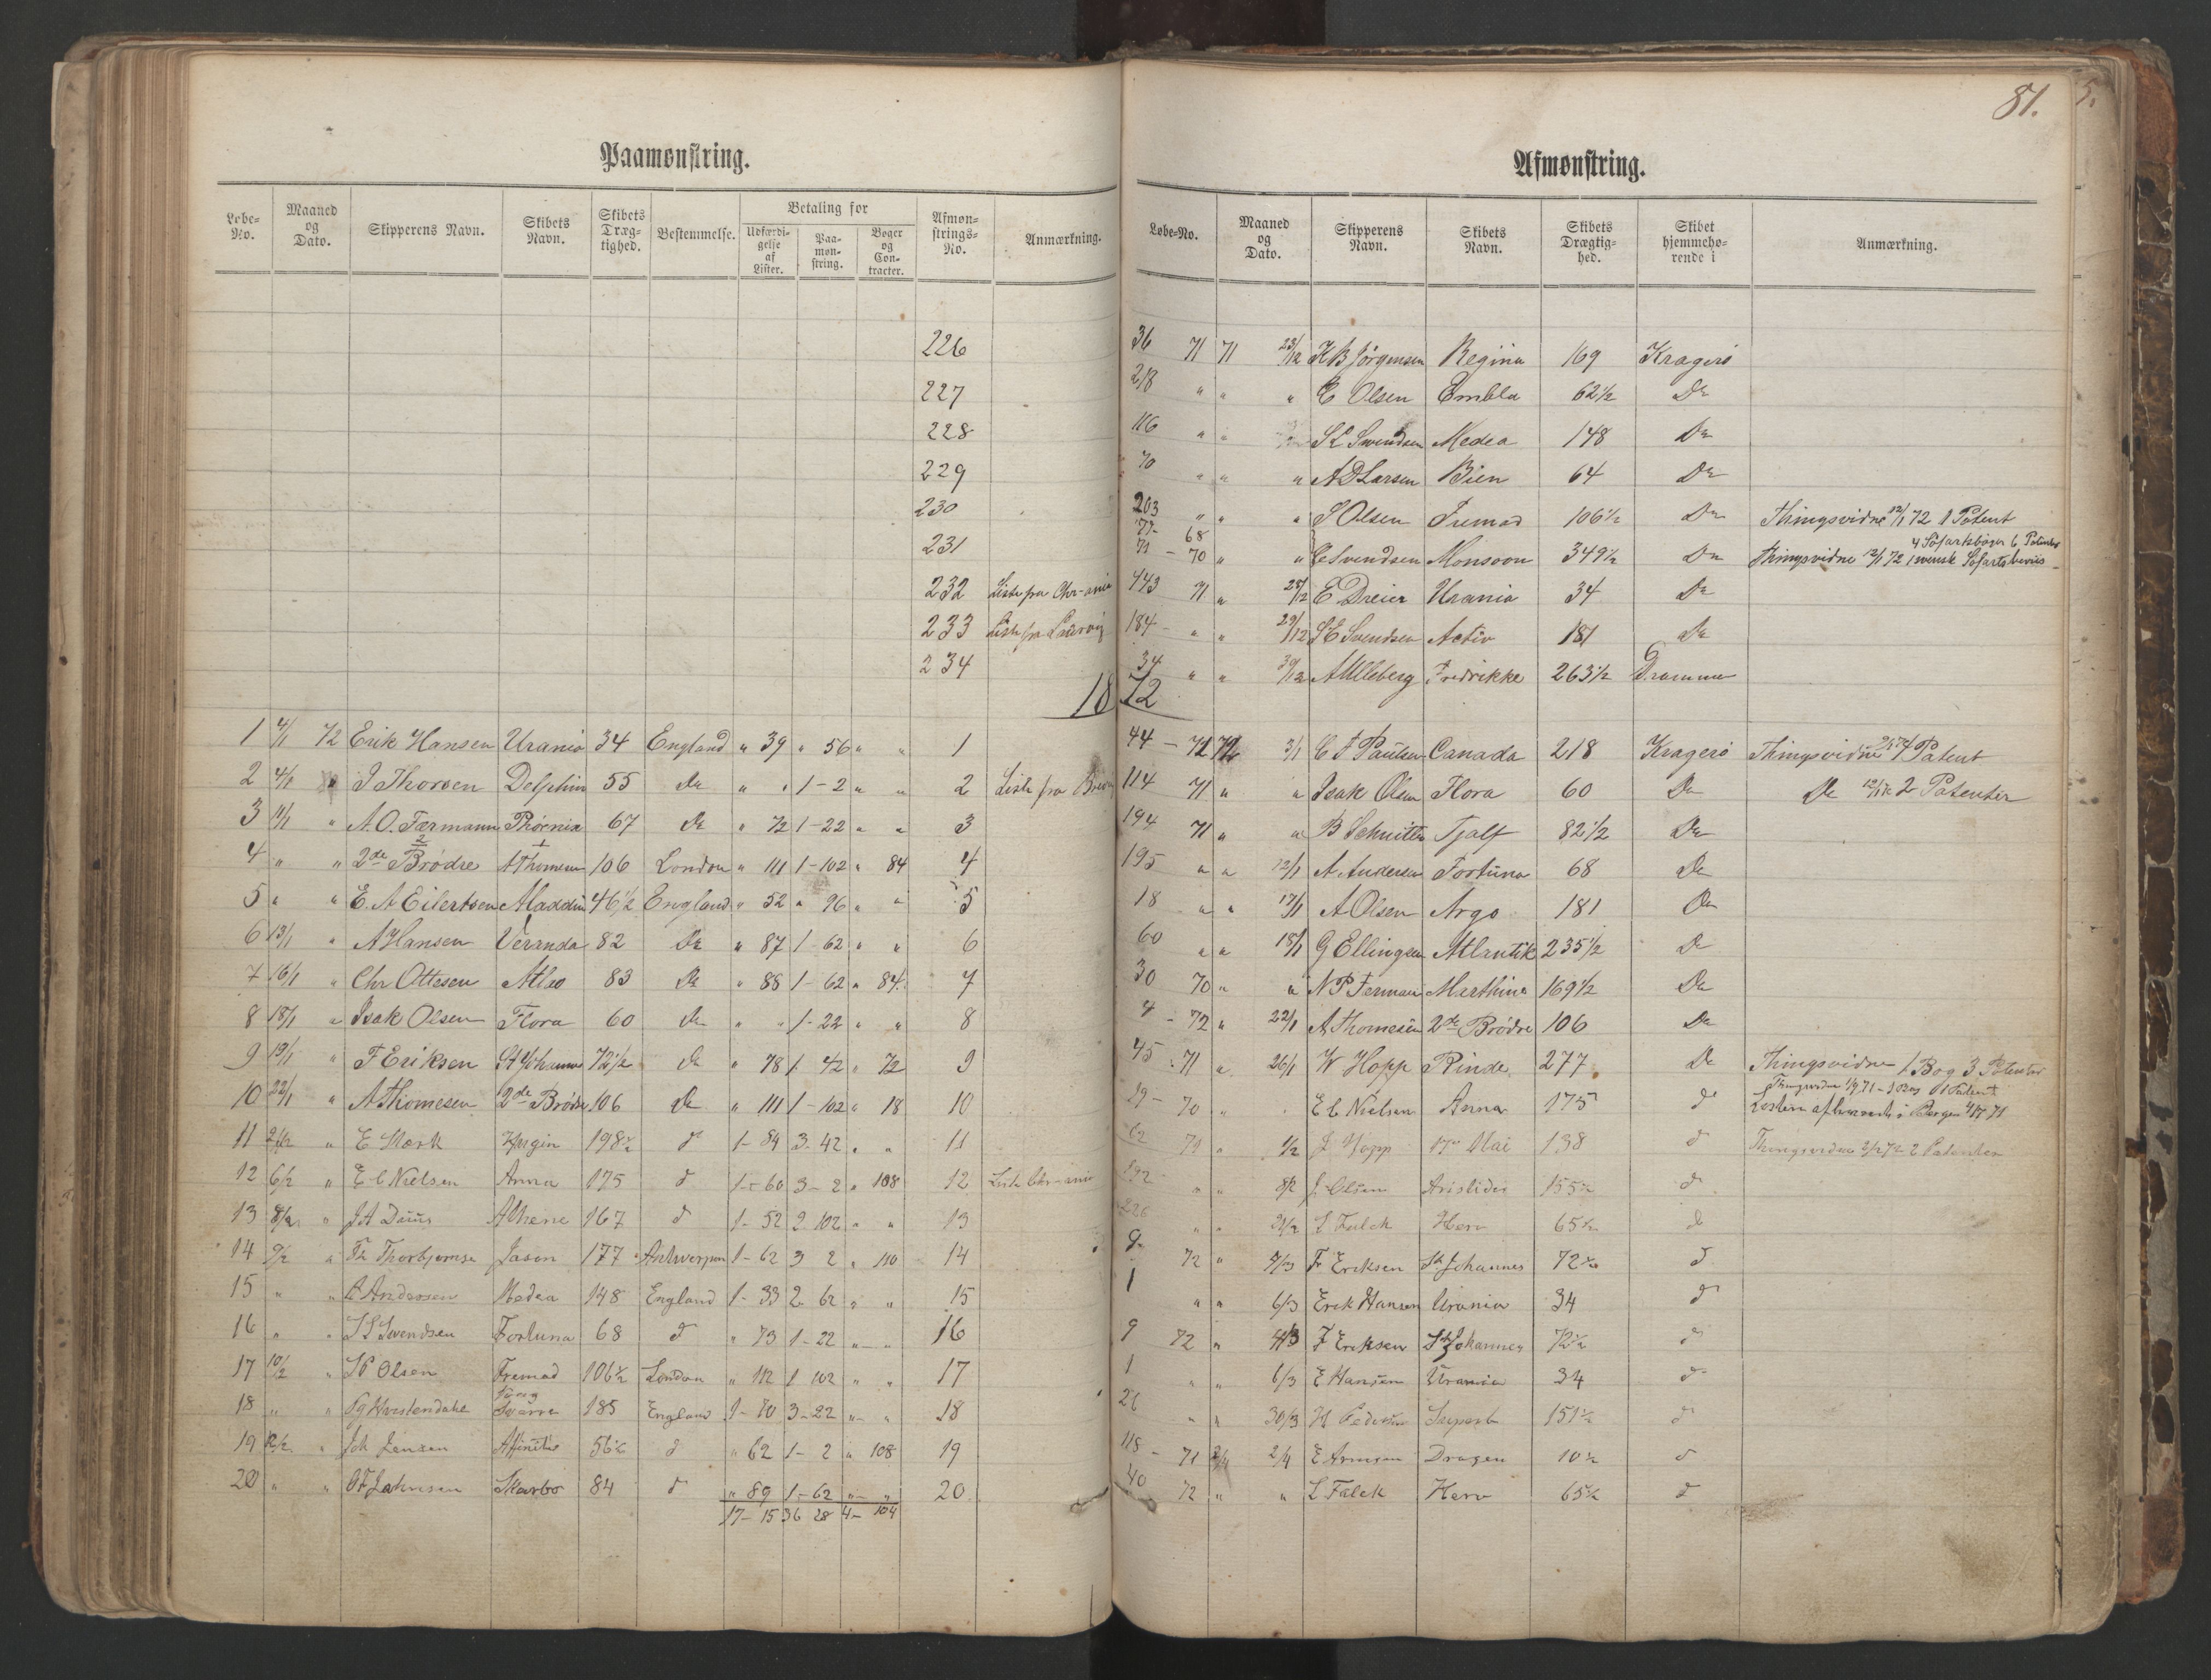 81.
Paamønstring.
Løbe-No. Maaned og Dato. Skipperens Navn. Skibets Navn. Skibets Dræg-tighed. Bestemmelse. Betaling for Udfærdi-gelse af Lister. Paa-møn-string. Bøger og Con-tracter. Afmøn-strings-No. Anmærkning.
226
227
228
229
230
231
232 Liste fra Chr-ania
233 Liste fra Laurvig
234
1872
1 4/1 72 Erik Hansen Urania 34 England " 39 " 56 " " 1
2 4/1 " J Thorsen Delphin 55 Do " " 1-2 " " 2 Liste fra Brevig
3 11/1 " A.O. Færmann Phönix 67 Do " 72 1-22 " " 3
4 " " 2de Brødre A Thomesen 106 London " 111 1-102 " 84 4
5 " " E. A Eilertsen Aladdin 46 1/2 England " 52 " 96 " " 5
6 13/1 " A Hansen Veranda 82 Do " 87 1-62 " " 6
7 16/1 " Chr Ottesen Atleo 83 Do " 88 1-62 " 84 7
8 18/1 " Isak Olsen Flora 60 Do " " 1-22 " " 8
9 19/1 " F Eriksen St Johannes 72 1/2 Do " 78 1 42 " 72 9
10 22/1 " A Thomesen 2de Brødre 106 Do " 111 1-102 " 18 10
11 " E Stærk Hugin 198 1/2 d 1-84 3-42 " " 11
12 6/2 " E C Nielsen Anna 175 d 1-60 3-2 " 108 12 Liste Chr-ania
13 8/2 " J A Duus Athene 167 d 1-52 2 102 " " 13
14 9/2 " Th Thorbjørnse Jason 177 Antwerpen 1-62 3 2 " 110 14
15 " " A Andersen Medea 148 England 1-33 2-62 " " 15
16 " " S L Svendsen Fortuna 68 d " 73 1-22 " " 16
17 10/2 " S Olsen Fremad 106 1/2 London " 112 1 102 " " 17
18 " " 185 England 1-70 3-22 " " 18
19 12/2 " Joh Jensen Affinitie 56 1/2 d " 62 1-2 " 108 19
20 " " O F Johnsen Skarbo 84 d " 89 1-62 " " 20
17-15 36 28 4-104
Afmønstring.
Løbe-No. Maaned og Dato. Skipperens Navn. Skibets Navn. Skibets Drægtig-hed. Skibet hjemmehø-rende i Anmærkning.
36 71 71 23/12 K B Jörgensen Regina 169 Kragerö
218 " " " C Olsen Embla 62 1/2 Do
116 " " " S L Svendsen Medea 148 Do
70 " " " A D Larsen Bien 64 Do
203 " " " S Olsen Fremad 106 1/2 Do Thingsvidne 12/1 72 1 Patent
77-68
71-70 " " C Svendsen Monsoon 349 1/2 Do Thingsvidne 12/1 72 4 Söfartsböger 6 Patenter 1 svensk Söfartsbevis
443 71 " 28/12 E Dreier Urania 34 Do
184 " " 29/12 S E Svendsen Activ 181 Do
34 " " 30/12 A Ulleberg Fredrikke 263 1/2 Drammen
44-71 72 3/1 C F Paulsen Canada 218 Kragerö Thingsvidne 1 Patent
114 71 " " Isak Olsen Flora 60 Do Do 12/1 72 2 Patenter
194 71 " " B Schnitler Tjalf 82 1/2 Do
195 " " 12/1 A Andersen Fortuna 68 Do
18 " " 17/1 A Olsen Argo 181 Do
60 " " 18/1 G Ellingsen Atlantik 235 1/2 Do
30 70 " " N P Ferman Marthina 169 1/2 Do
4-72 " 22/1 A Thomesen 2de Brødre 106 Do
45-71 " 26/1 W Hopp Rinde 277 Do Thingsvidne 1 Bog 3 Patenter
29-70 " " E C Nielsen Anna 175 d Thingsvidne 1/9 71-3 Bog 1 Patent
i Bergen
62 71 " 1/2 J Hopp 17de Mai 138 d Thingsvidne 2/2 72 2 Patenter
192 " " 8/2 J Olsen Aristides 155 1/2 d
226 " " 21/2 L Falck Herv 65 1/2 d
9 72 " 4/3 Fr Eriksen St Johannes 72 1/2 d
1 " " 6/3 Erik Hansen Urania 34 d
9 72 " 4/3 F Eriksen St Johannes 72 1/2 d
1 " " 6/3 E Hansen Urania 34 d
26 " " 30/3 H Pedersen Superb 151 1/2 d
118-71 2/4 E Arnesen Dragen 10 1/2 d
40 72 " " L Falck Herv 65 1/2 d